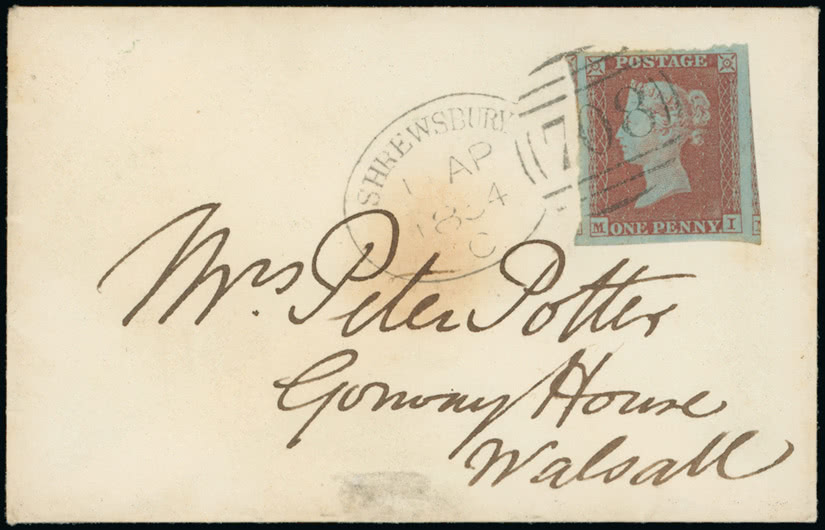 POSTAGE
708
M ONE PENNY I
SHREWSBURY
AP
1854
C
Mrs Peter Potter
House
Walsall